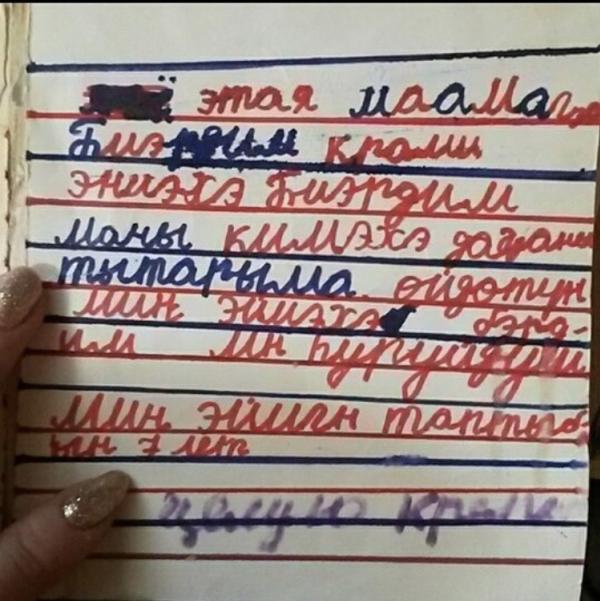 этая маама
Биэрдим кроли
эниэхэ Биэрдим
маны кимэхэ даҕаны
тытарыма ойдотун
мин эйиэхэ бэрд-
им мн һуруйдум
мин эйигн таптыы-
ын 7 лет
целую кроли